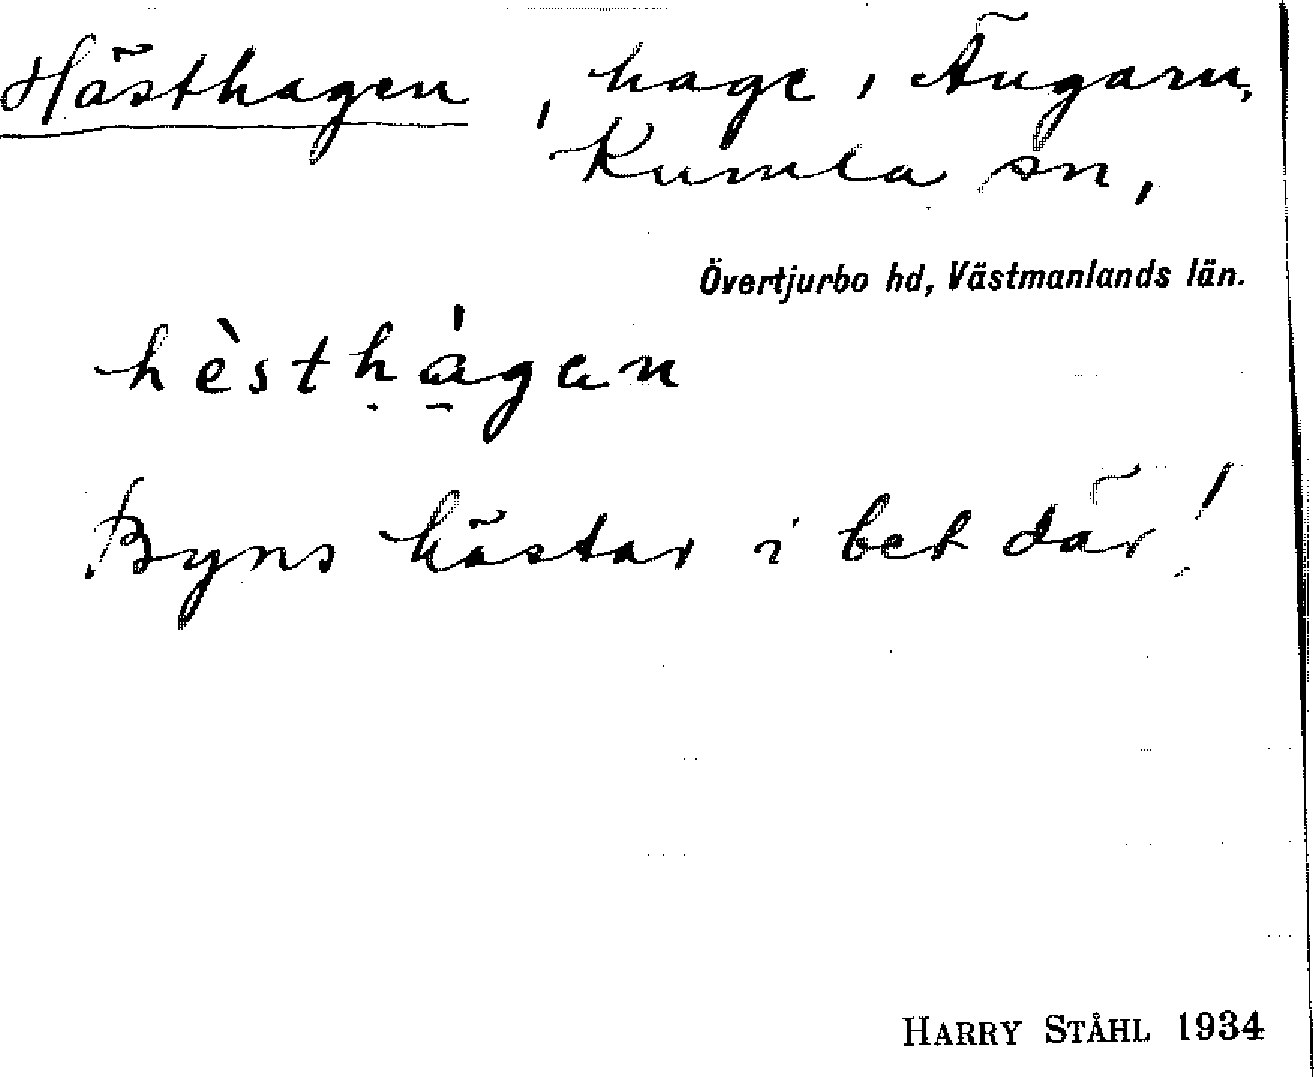 Hästhagen, hage, Ängarn,
Kumla sn,
Övertjurbo hd, Västmanlands län.
hèsthágan
Byns hästar i bet där!
HARRY STÅHL 1934